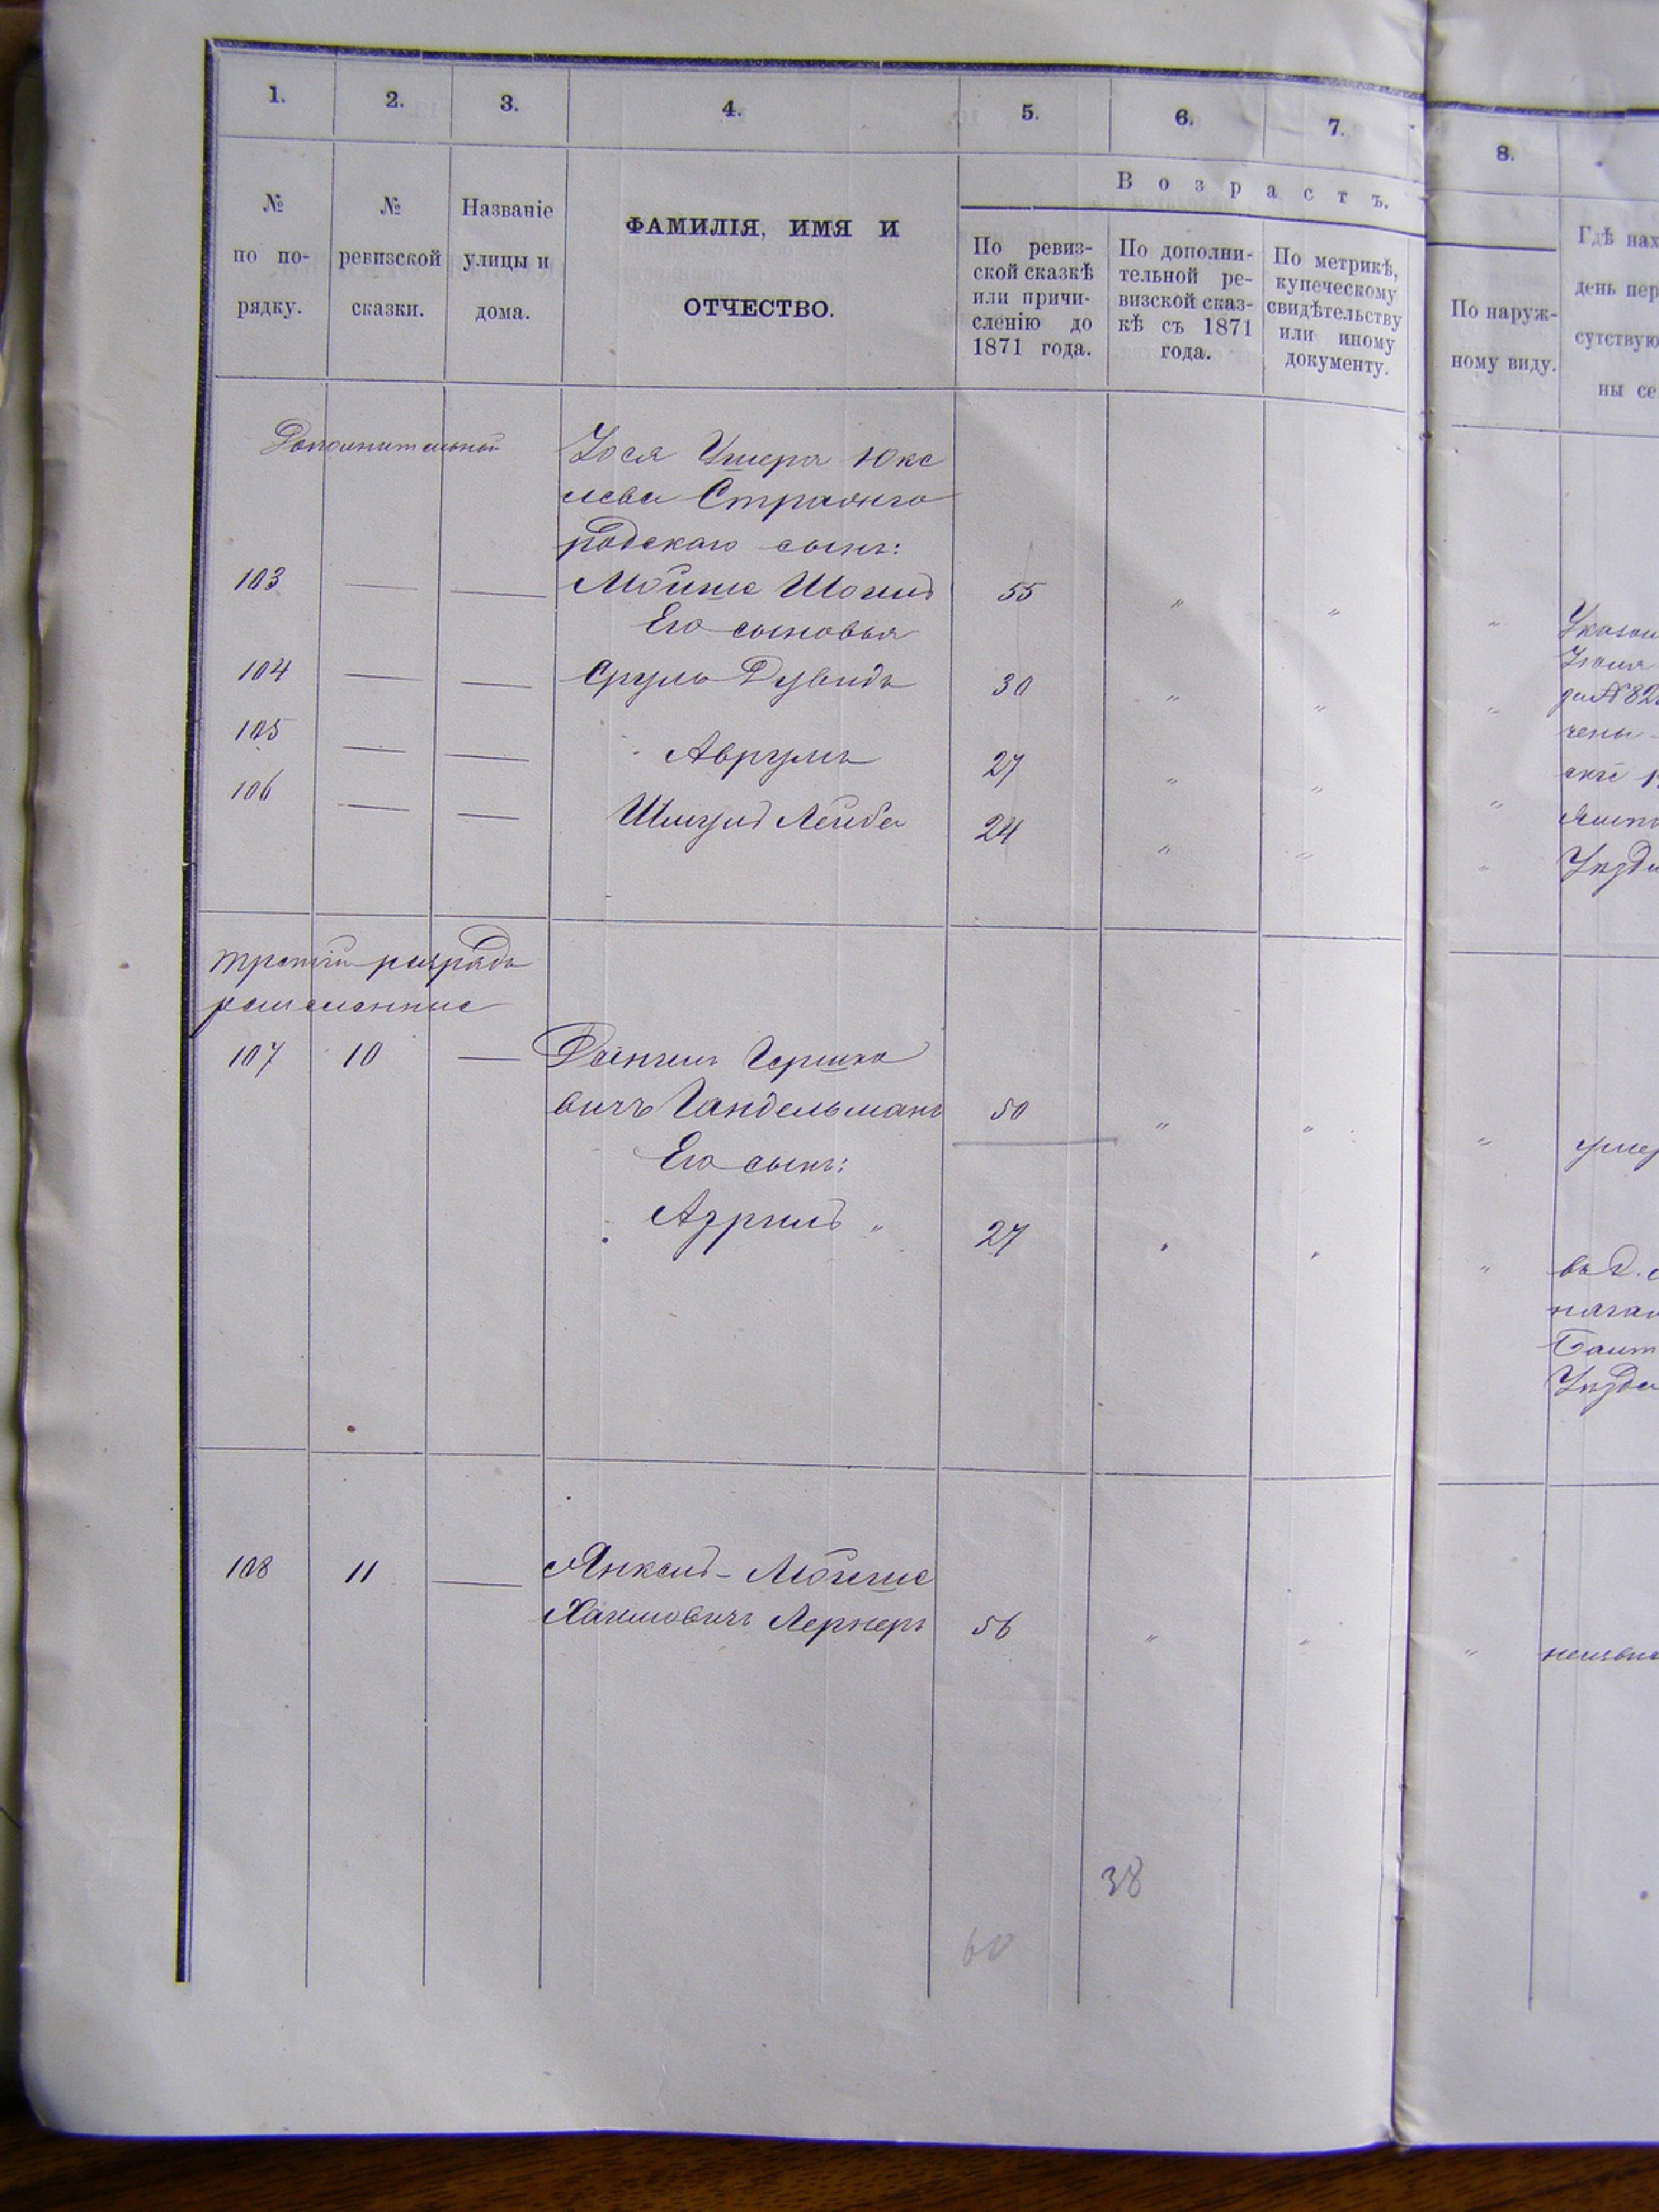 1. 2. 3. 4. 5. 6. 7. 8.
Возрастъ.
№ по порядку.
№ ревизской сказки.
Названіе улицы и дома.
ФАМИЛІЯ, ИМЯ И
ОТЧЕСТВО.
По ревиз-
ской сказкѣ
или причи-
сленію до
1871 года.
По дополни-
тельной ре-
визской сказ-
кѣ съ 1871
года.
По метрикѣ,
купеческому
свидѣтельству
или иному
документу.
По наруж-
ному виду.
Гдѣ нах
день пер
сутствую
ны се
Дополнительной
Іося Ушера Юкс
лева
сынъ:
103 — — Мойше Шоилъ 55 " " "
Его сыновья
104 — — Сруль Дувидъ 30 " " "
105 — — Аврумъ 27 " " "
106 — — Шмуль Лейба 24 " " "
третій разрядъ
107 10 — Гершко
вичъ Гандельманъ 50 " " " умер
Его сынъ:
Азрилъ " 27 " " "
108 11 — Янкель-Мойше
Хаимовичъ Лернеръ 56 " " "
38
60